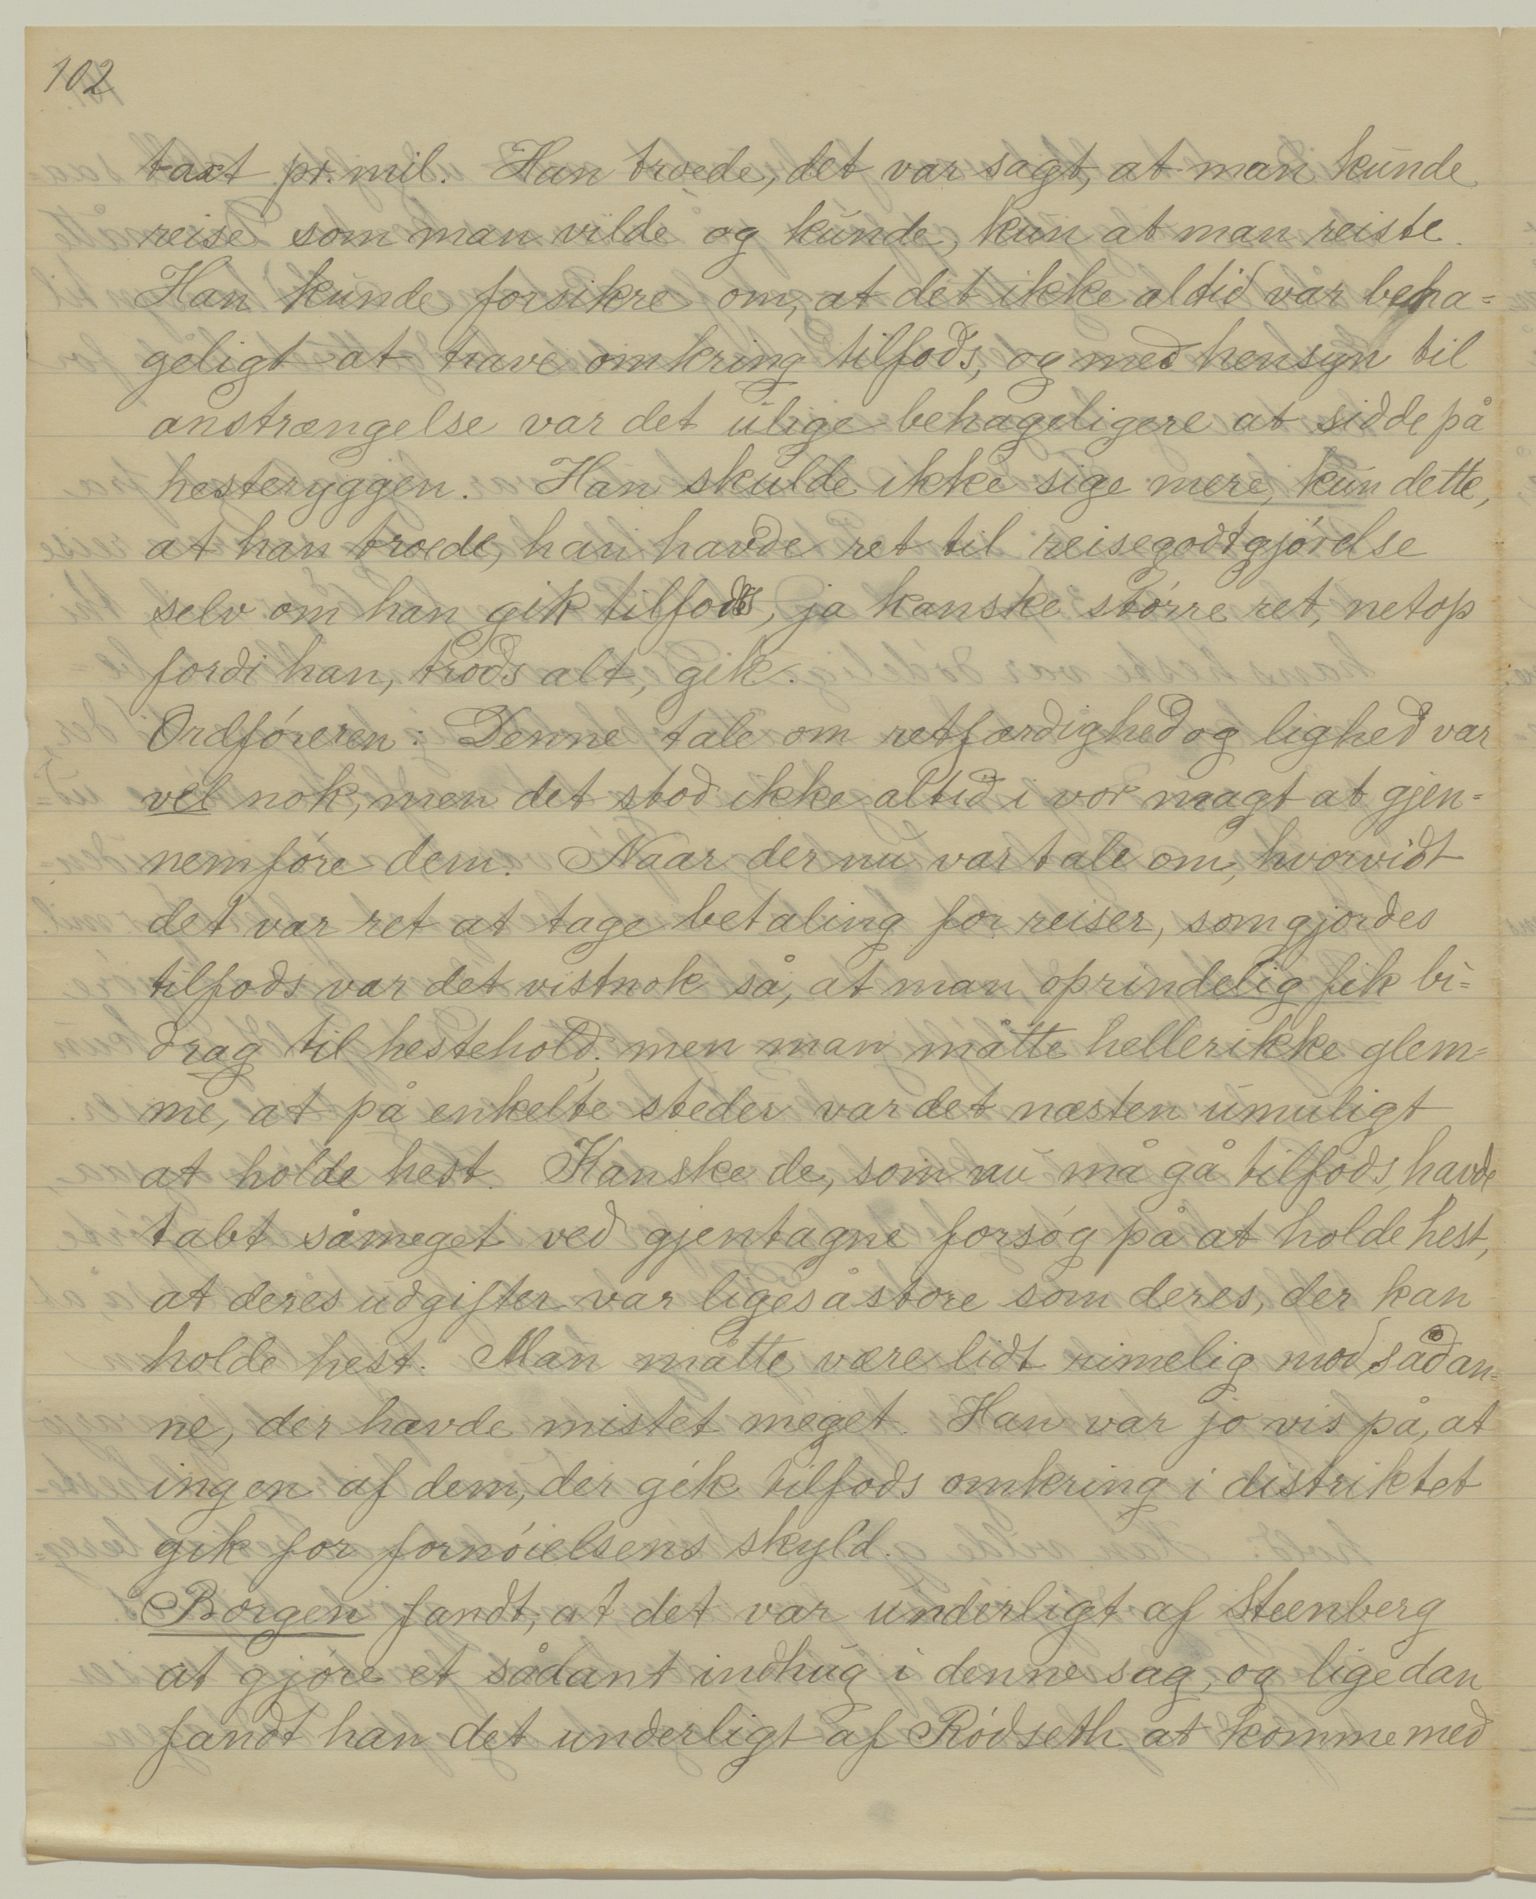 102
taxt pr. mil. Han troede, det var sagt, at man kunde
reise som man vilde og kunde, kun at man reiste.
Han kunde forsikre om, at det ikke altid var beha=
geligt at trave omkring tilfods, og med hensyn til
anstrængelse var det ulige behageligere at sidde på
hesteryggen. Han skulde ikke sige mere, kun dette,
at han troede, han havde ret til reisegodtgjórelse
selv om han gik tilfods, ja kanske stórre ret, netop
fordi han, trods alt, gik.
Ordfóreren: Denne tale om retfærdighed og lighed var
vel nok, men det stod ikke altid i vor magt at gjen=
nemfóre dem. Naar der nu var tale om, hvorvidt
det var ret at tage betaling for reiser, som gjordes
tilfods var det vistnok så, at man oprindelig fik bi=
drag til hestehold; men man måtte heller ikke glem=
me, at på enkelte steder var det næsten umuligt
at holde hest. Kanske de, som nu må gå tilfods, havde
tabt såmeget ved gjentagne forsóg på at holde hest,
at deres udgifter var ligesåstore som deres, der kan
holde hest. Man måtte være lidt rimelig mod sådan=
ne, der havde mistet meget. Han var jo vis på, at
ingen af dem, der gik tilfods omkring i distriktet
gik for fornóielsens skyld.
Borgen fandt, at det var underligt af Steenberg
at gjóre et sådant indhug i denne sag, og ligedan
fandt han det underligt af Ródseth at komme med